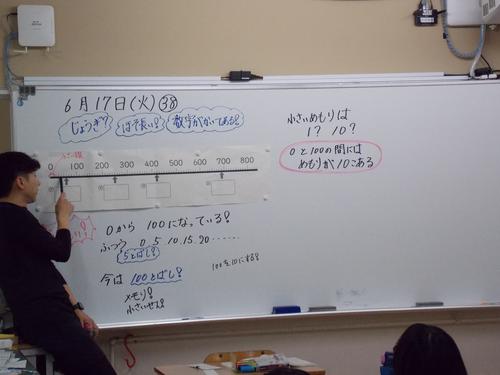 6月17日(火)㊳
じょうぎ?
ほそ長い!
数字がかいてある!
0 100 200 300 400 500 600 700 800
0から 100になっている!
ふつう 0 5 10.15.20……
5とばし!
今は 100とばし!
メモリ!
100を10にする!
小さいめもりは
1? 10?
0と100の間には
めもりが10こある